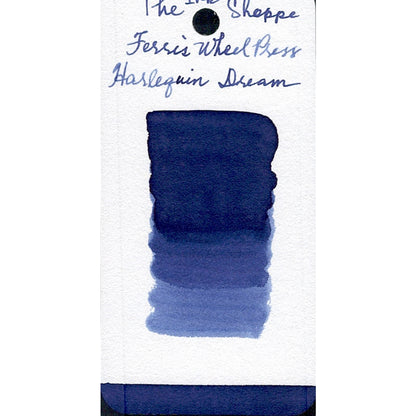 The Ink Shoppe
Ferris Wheel Press
Harlequin Dream